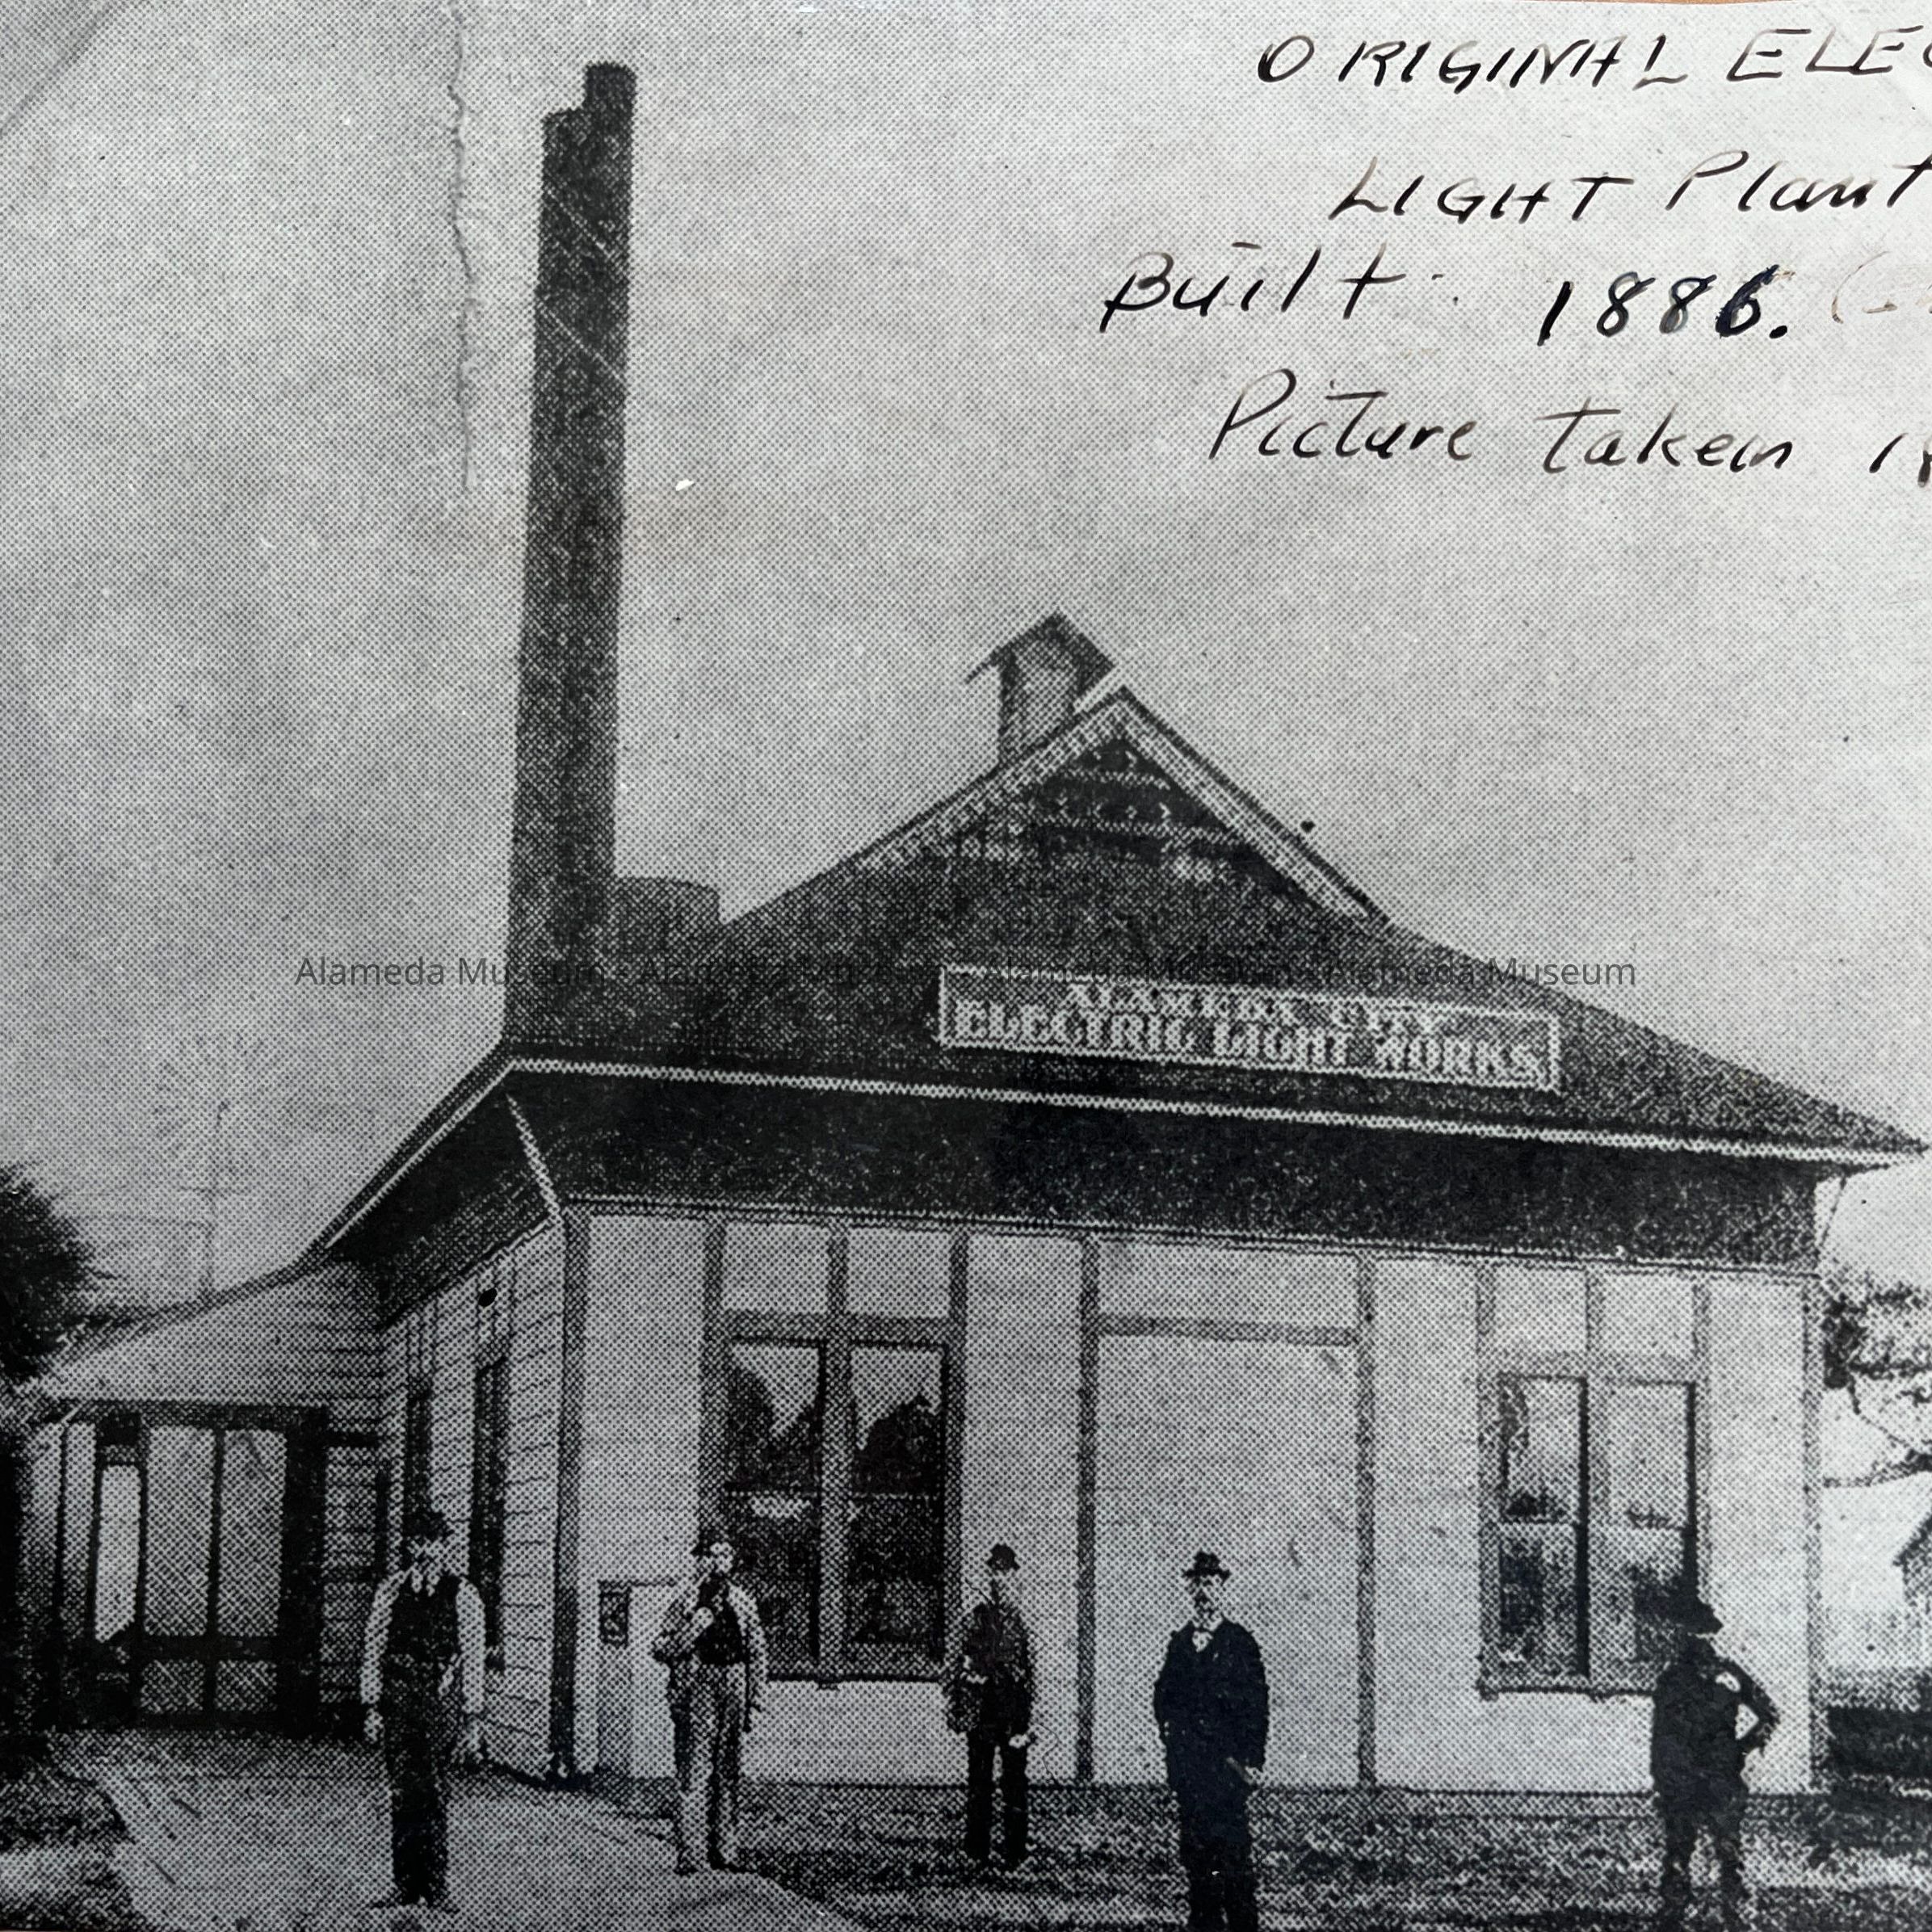 ORIGINAL ELEC
LIGHT Plant
Built 1886.
Picture taken
Alameda Museum - Alameda Museum - Alameda Museum - Alameda Museum
ALAMEDA CITY
ELECTRIC LIGHT WORKS